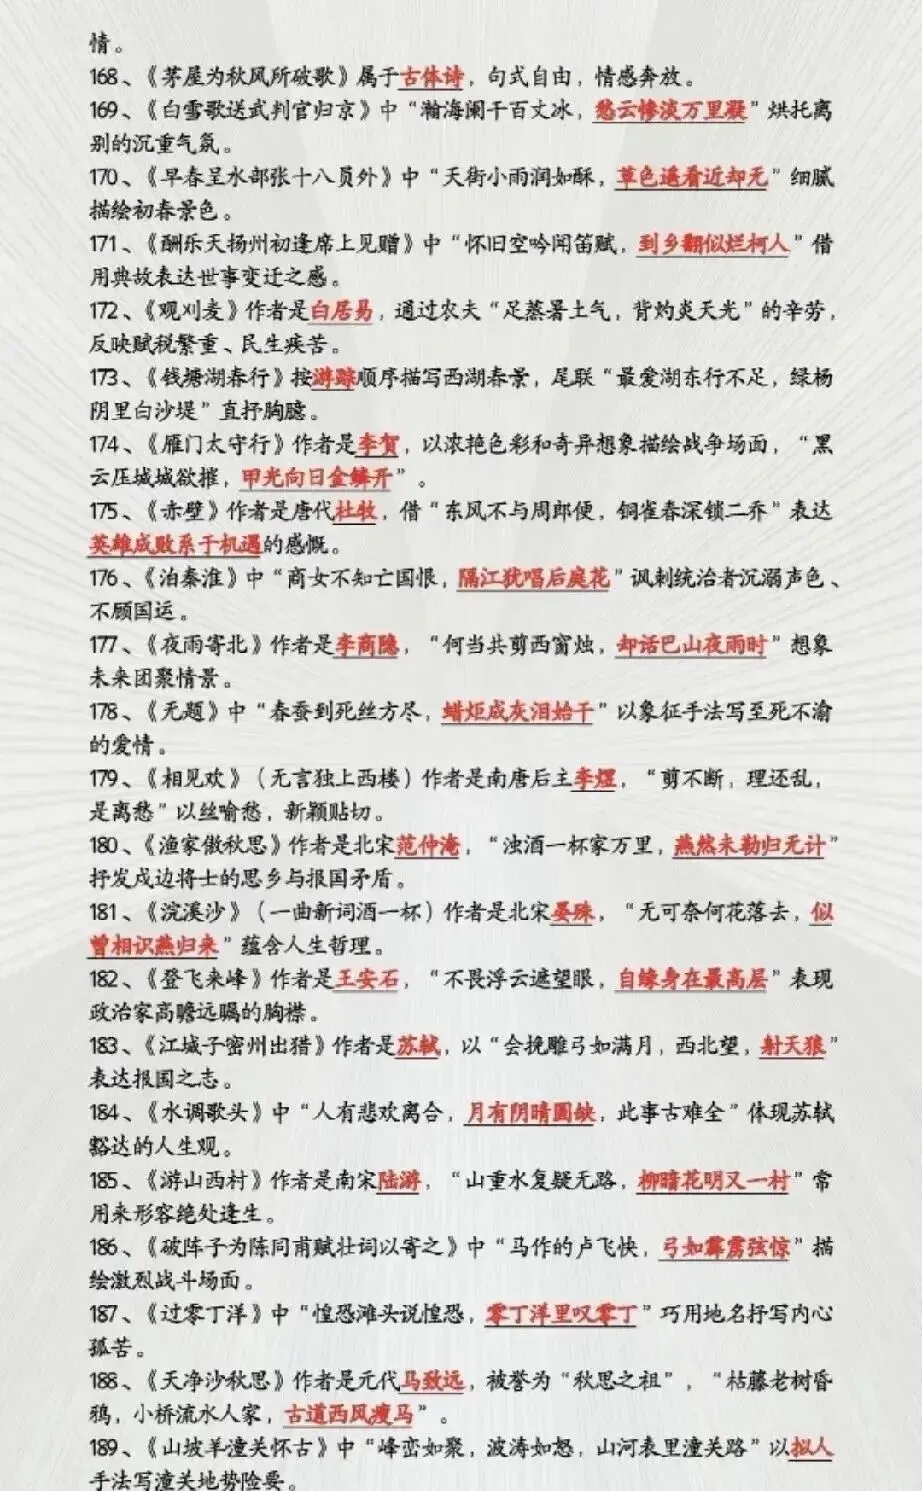 情。
168、《茅屋为秋风所破歌》属于古体诗，句式自由，情感奔放。
169、《白雪歌送武判官归京》中“瀚海阑干百丈冰，愁云惨淡万里凝”烘托离
别的沉重气氛。
170、《早春呈水部张十八员外》中“天街小雨润如酥，草色遥看近却无”细腻
描绘初春景色。
171、《酬乐天扬州初逢席上见赠》中“怀旧空吟闻笛赋，到乡翻似烂柯人”借
用典故表达世事变迁之感。
172、《观刈麦》作者是白居易，通过农夫“足蒸暑土气，背灼炎天光”的辛劳，
反映赋税繁重、民生疾苦。
173、《钱塘湖春行》按游踪顺序描写西湖春景，尾联“最爱湖东行不足，绿杨
阴里白沙堤”直抒胸臆。
174、《雁门太守行》作者是李贺，以浓艳色彩和奇异想象描绘战争场面，“黑
云压城城欲摧，甲光向日金鳞开”。
175、《赤壁》作者是唐代杜牧，借“东风不与周郎便，铜雀春深锁二乔”表达
英雄成败系于机遇的感慨。
176、《泊秦淮》中“商女不知亡国恨，隔江犹唱后庭花”讽刺统治者沉溺声色、
不顾国运。
177、《夜雨寄北》作者是李商隐，“何当共剪西窗烛，却话巴山夜雨时”想象
未来团聚情景。
178、《无题》中“春蚕到死丝方尽，蜡炬成灰泪始干”以象征手法写至死不渝
的爱情。
179、《相见欢》（无言独上西楼）作者是南唐后主李煜，“剪不断，理还乱，
是离愁”以丝喻愁，新颖贴切。
180、《渔家傲秋思》作者是北宋范仲淹，“浊酒一杯家万里，燕然未勒归无计”
抒发戍边将士的思乡与报国矛盾。
181、《浣溪沙》（一曲新词酒一杯）作者是北宋晏殊，“无可奈何花落去，似
曾相识燕归来”蕴含人生哲理。
182、《登飞来峰》作者是王安石，“不畏浮云遮望眼，自缘身在最高层”表现
政治家高瞻远瞩的胸襟。
183、《江城子密州出猎》作者是苏轼，以“会挽雕弓如满月，西北望，射天狼”
表达报国之志。
184、《水调歌头》中“人有悲欢离合，月有阴晴圆缺，此事古难全”体现苏轼
豁达的人生观。
185、《游山西村》作者是南宋陆游，“山重水复疑无路，柳暗花明又一村”常
用来形容绝处逢生。
186、《破阵子为陈同甫赋壮词以寄之》中“马作的卢飞快，弓如霹雳弦惊”描
绘激烈战斗场面。
187、《过零丁洋》中“惶恐滩头说惶恐，零丁洋里叹零丁”巧用地名抒写内心
孤苦。
188、《天净沙秋思》作者是元代马致远，被誉为“秋思之祖”，“枯藤老树昏
鸦，小桥流水人家，古道西风瘦马”。
189、《山坡羊潼关怀古》中“峰峦如聚，波涛如怒，山河表里潼关路”以拟人
手法写潼关地势险要。